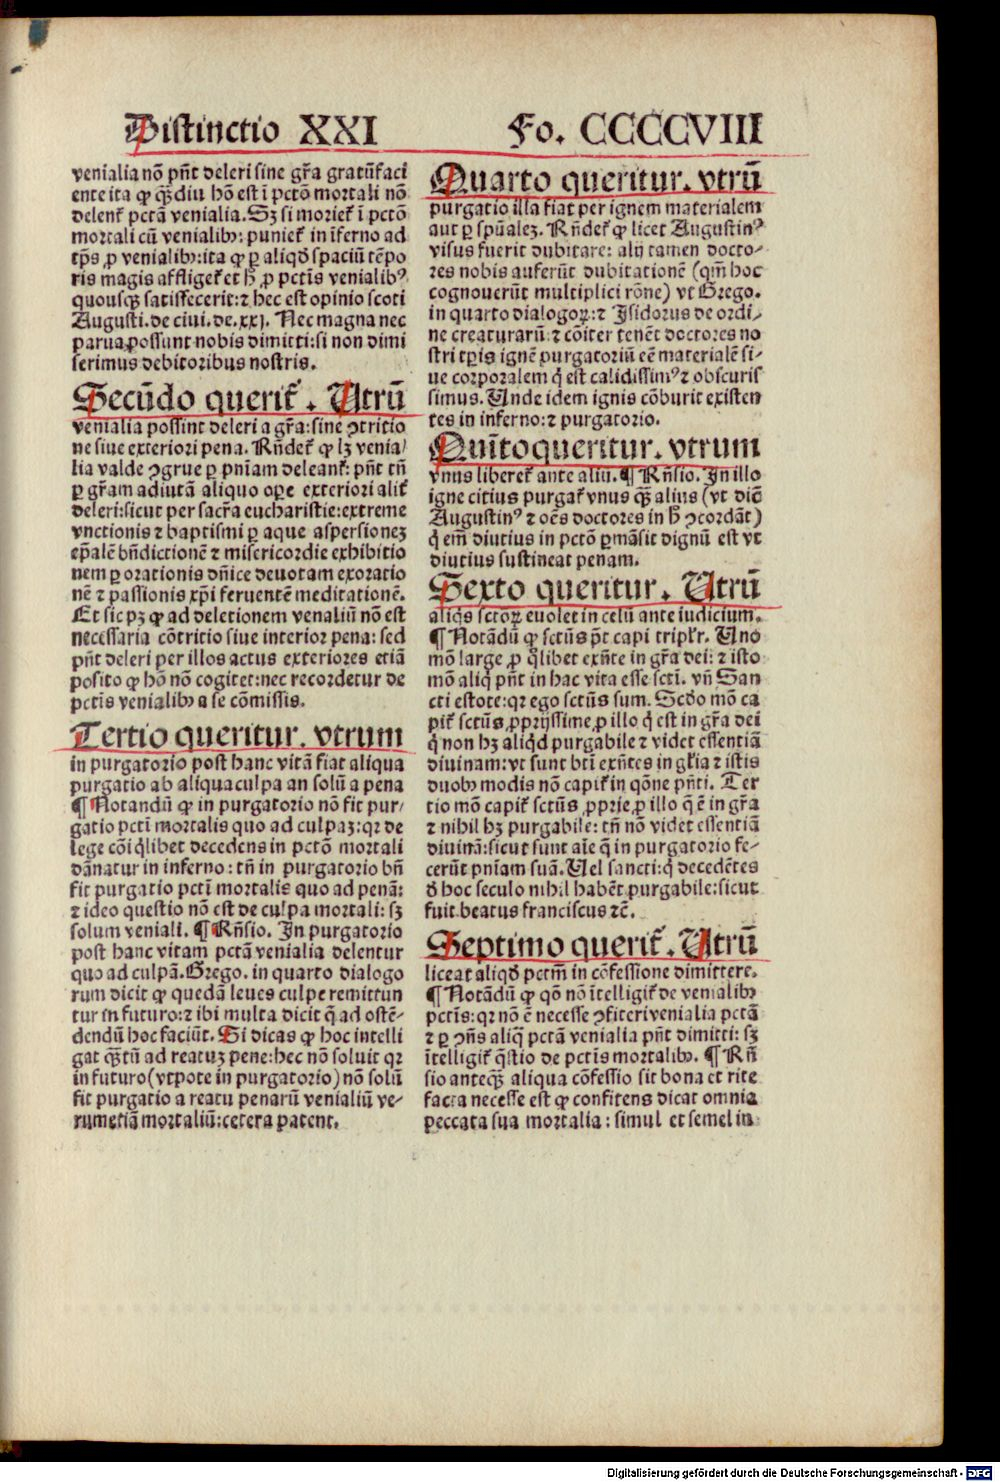 Distinctio XXI Fo. CCCCVIII
venialia nõ pñt deleri sine gr̃a gratũfaci
ente ita ꝙ qᷓ̃diu hõ est ĩ pctõ mortali nõ
delent᷑ pctã venialia. Sꝫ si moriet᷑ ĩ pctõ
mortali cũ venialibꝰ: puniet᷑ in ĩferno ad
tp̃s ꝓ venialibꝰ: ita ꝙ ꝑ aliqd̾ spaciũ tẽpo
ris magis affliget᷑ et h̃ ꝓ pctĩs venialibꝰ
quousqꝫ satisfecerit: ⁊ hec est opinio scoti
Augusti. de ciui. de. xxj. Nec magna nec
parua possunt nobis dimitti: si non dimi
serimus debitoribus nostris.
Secũdo querit᷑. Utrũ
venialia possint deleri a gr̃a: sine ꝯtritio
ne siue exteriori pena. Rñdet᷑ ꝙ lꝫ venia/
lia valde ꝯgrue ꝑ pnĩam deleant᷑: pñt tñ
ꝑ gr̃am adiutã aliquo oꝑe exteriori alit᷑
deleri: sicut per sacr̃a eucharistie: extreme
vnctionis ⁊ baptismi ꝑ aque aspersioneꝫ
ep̃alẽ bñdictionẽ ⁊ misericordie exhibitio
nem ꝑ orationis dñice deuotam exoratio
nẽ ⁊ passionis xp̃i feruentẽ meditationẽ.
Et sic pꝫ ꝙ ad deletionem venaliũ nõ est
necessaria cõtritio siue interior pena: sed
pñt deleri per illos actus exteriores etiã
posito ꝙ hõ nõ cogitet: nec recordetur de
pctĩs venialibꝰ a se cõmissis.
Tertio queritur. vtrum
in purgatorio post hanc vitã fiat aliqua
purgatio ab aliqua culpa an solũ a pena
¶ Notandũ ꝙ in purgatorio nõ fit pur/
gatio pctĩ mortalis quo ad culpaꝫ: qꝛ de
lege cõi ql̃ibet decedens in pctõ mortali
dãnatur in inferno: tñ in purgatorio bñ
fit purgatio pctĩ mortalis quo ad penã:
⁊ ideo questio nõ est de culpa mortali: sꝫ
solum veniali. ¶ Rñsio. In purgatorio
post hanc vitam pctã venialia delentur
quo ad culpã. Grego. in quarto dialogo
rum dicit ꝙ quedã leues culpe remittun
tur in futuro: ⁊ ibi multa dicit q̃ ad ostẽ-
dendũ hoc faciũt. Si dicas ꝙ hoc intelli
gat qᷓ̃tũ ad reatuꝫ pene: hec nõ soluit qꝛ
in futuro (vtpote in purgatorio) nõ solũ
fit purgatio a reatu penarũ venialiũ ve-
rumetiã mortaliũ: cetera patent.
Quarto queritur. vtrũ
purgatio illa fiat per ignem materialem
aut ꝑ spũaleꝫ. Rñdet᷑ ꝙ licet Augustinꝰ
visus fuerit dubitare: alij tamen docto-
res nobis auferũt dubitationẽ (qm̃ hoc
cognouerũt multiplici rõne) vt Grego.
in quarto dialogoꝝ: ⁊ Isidorus de ordi-
ne creaturarũ: ⁊ cõiter tenẽt doctores no
stri tꝑis ignẽ purgatoriũ eẽ materialẽ si-
ue corporalem q̃ est calidissimꝰ ⁊ obscuris
simus. Unde idem ignis cõburit existen
tes in inferno: ⁊ purgatorio.
Quĩto queritur. vtrum
vnus liberet᷑ ante aliũ. ¶ Rñsio. In illo
igne citius purgat᷑ vnus qᷓ̃ alius (vt dic̃
Augustinꝰ ⁊ oẽs doctores in h̃ ꝯcordãt)
q̃ em̃ diutius in pctõ ꝑmãsit dignũ est vt
diutius sustineat penam.
Sexto queritur. Utrũ
aliqs sctõꝝ euolet in celũ ante iudicium.
¶ Notãdũ ꝙ sctũs põt capi tripl̃r. Uno
mõ large ꝓ ql̃ibet exñte in gr̃a dei: ⁊ isto
mõ aliq̃ pñt in hac vita esse scti. vñ San
cti estote: qꝛ ego sctũs sum. Scd̾o mõ ca
pit᷑ sctũs ꝓprijssime ꝓ illo q̃ est in gr̃a dei
q̃ non hꝫ aliqd̾ purgabile ⁊ videt essentiã
diuinam: vt sunt btĩ exñtes in gl̃ia ⁊ istis
duobꝰ modis nõ capit᷑ in qõne pñti. Ter
tio mõ capit᷑ sctũs ꝓprie ꝓ illo q̃ ẽ in gr̃a
⁊ nihil hꝫ purgabile: tñ nõ videt essentiã
diuinã: sicut sunt aĩe q̃ in purgatorio fe-
cerũt pnĩam suã. Uel sancti: q̃ decedẽtes
d̾ hoc seculo nihil habẽt purgabile: sicut
fuit beatus franciscus ⁊c̃.
Septimo querit᷑. Utrũ
liceat aliqd̾ pctm̃ in cõfessione dimittere.
¶ Notandũ ꝙ qõ nõ ĩtelligit᷑ de venialibꝰ
pctĩs: qꝛ nõ ẽ necesse ꝯfiteri venialia pctã
⁊ ꝑ ꝯñs aliq̃ pctã venialia pñt dimitti: sꝫ
ĩtelligit᷑ q̃stio de pctĩs mortalibꝰ. ¶ Rñ
sio anteqᷓ̃ aliqua cõfessio sit bona et rite
facta necesse est ꝙ confitens dicat omnia
peccata sua mortalia: simul et semel in
Digitalisierung gefördert durch die Deutsche Forschungsgemeinschaft - DFG